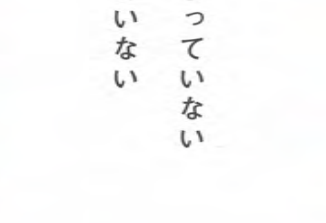 っていない
いない